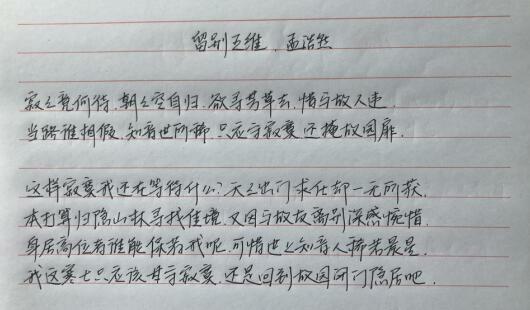 留别王维，孟浩然
寂寂竟何待，朝朝空自归，欲寻芳草去，惜与故人违，
当路谁相假，知音世所稀，只应守寂寞，还掩故园扉．
这样寂寞我还在等待什么？天天出门求仕却一无所获，
本打算归隐山林寻找佳境，又因与故友离别深感惋惜，
身居高位者谁能保荐我呢，可惜世上知音人稀若晨星，
我这寒士只应该甘守寂寞，还是回到故园闭门隐居吧．